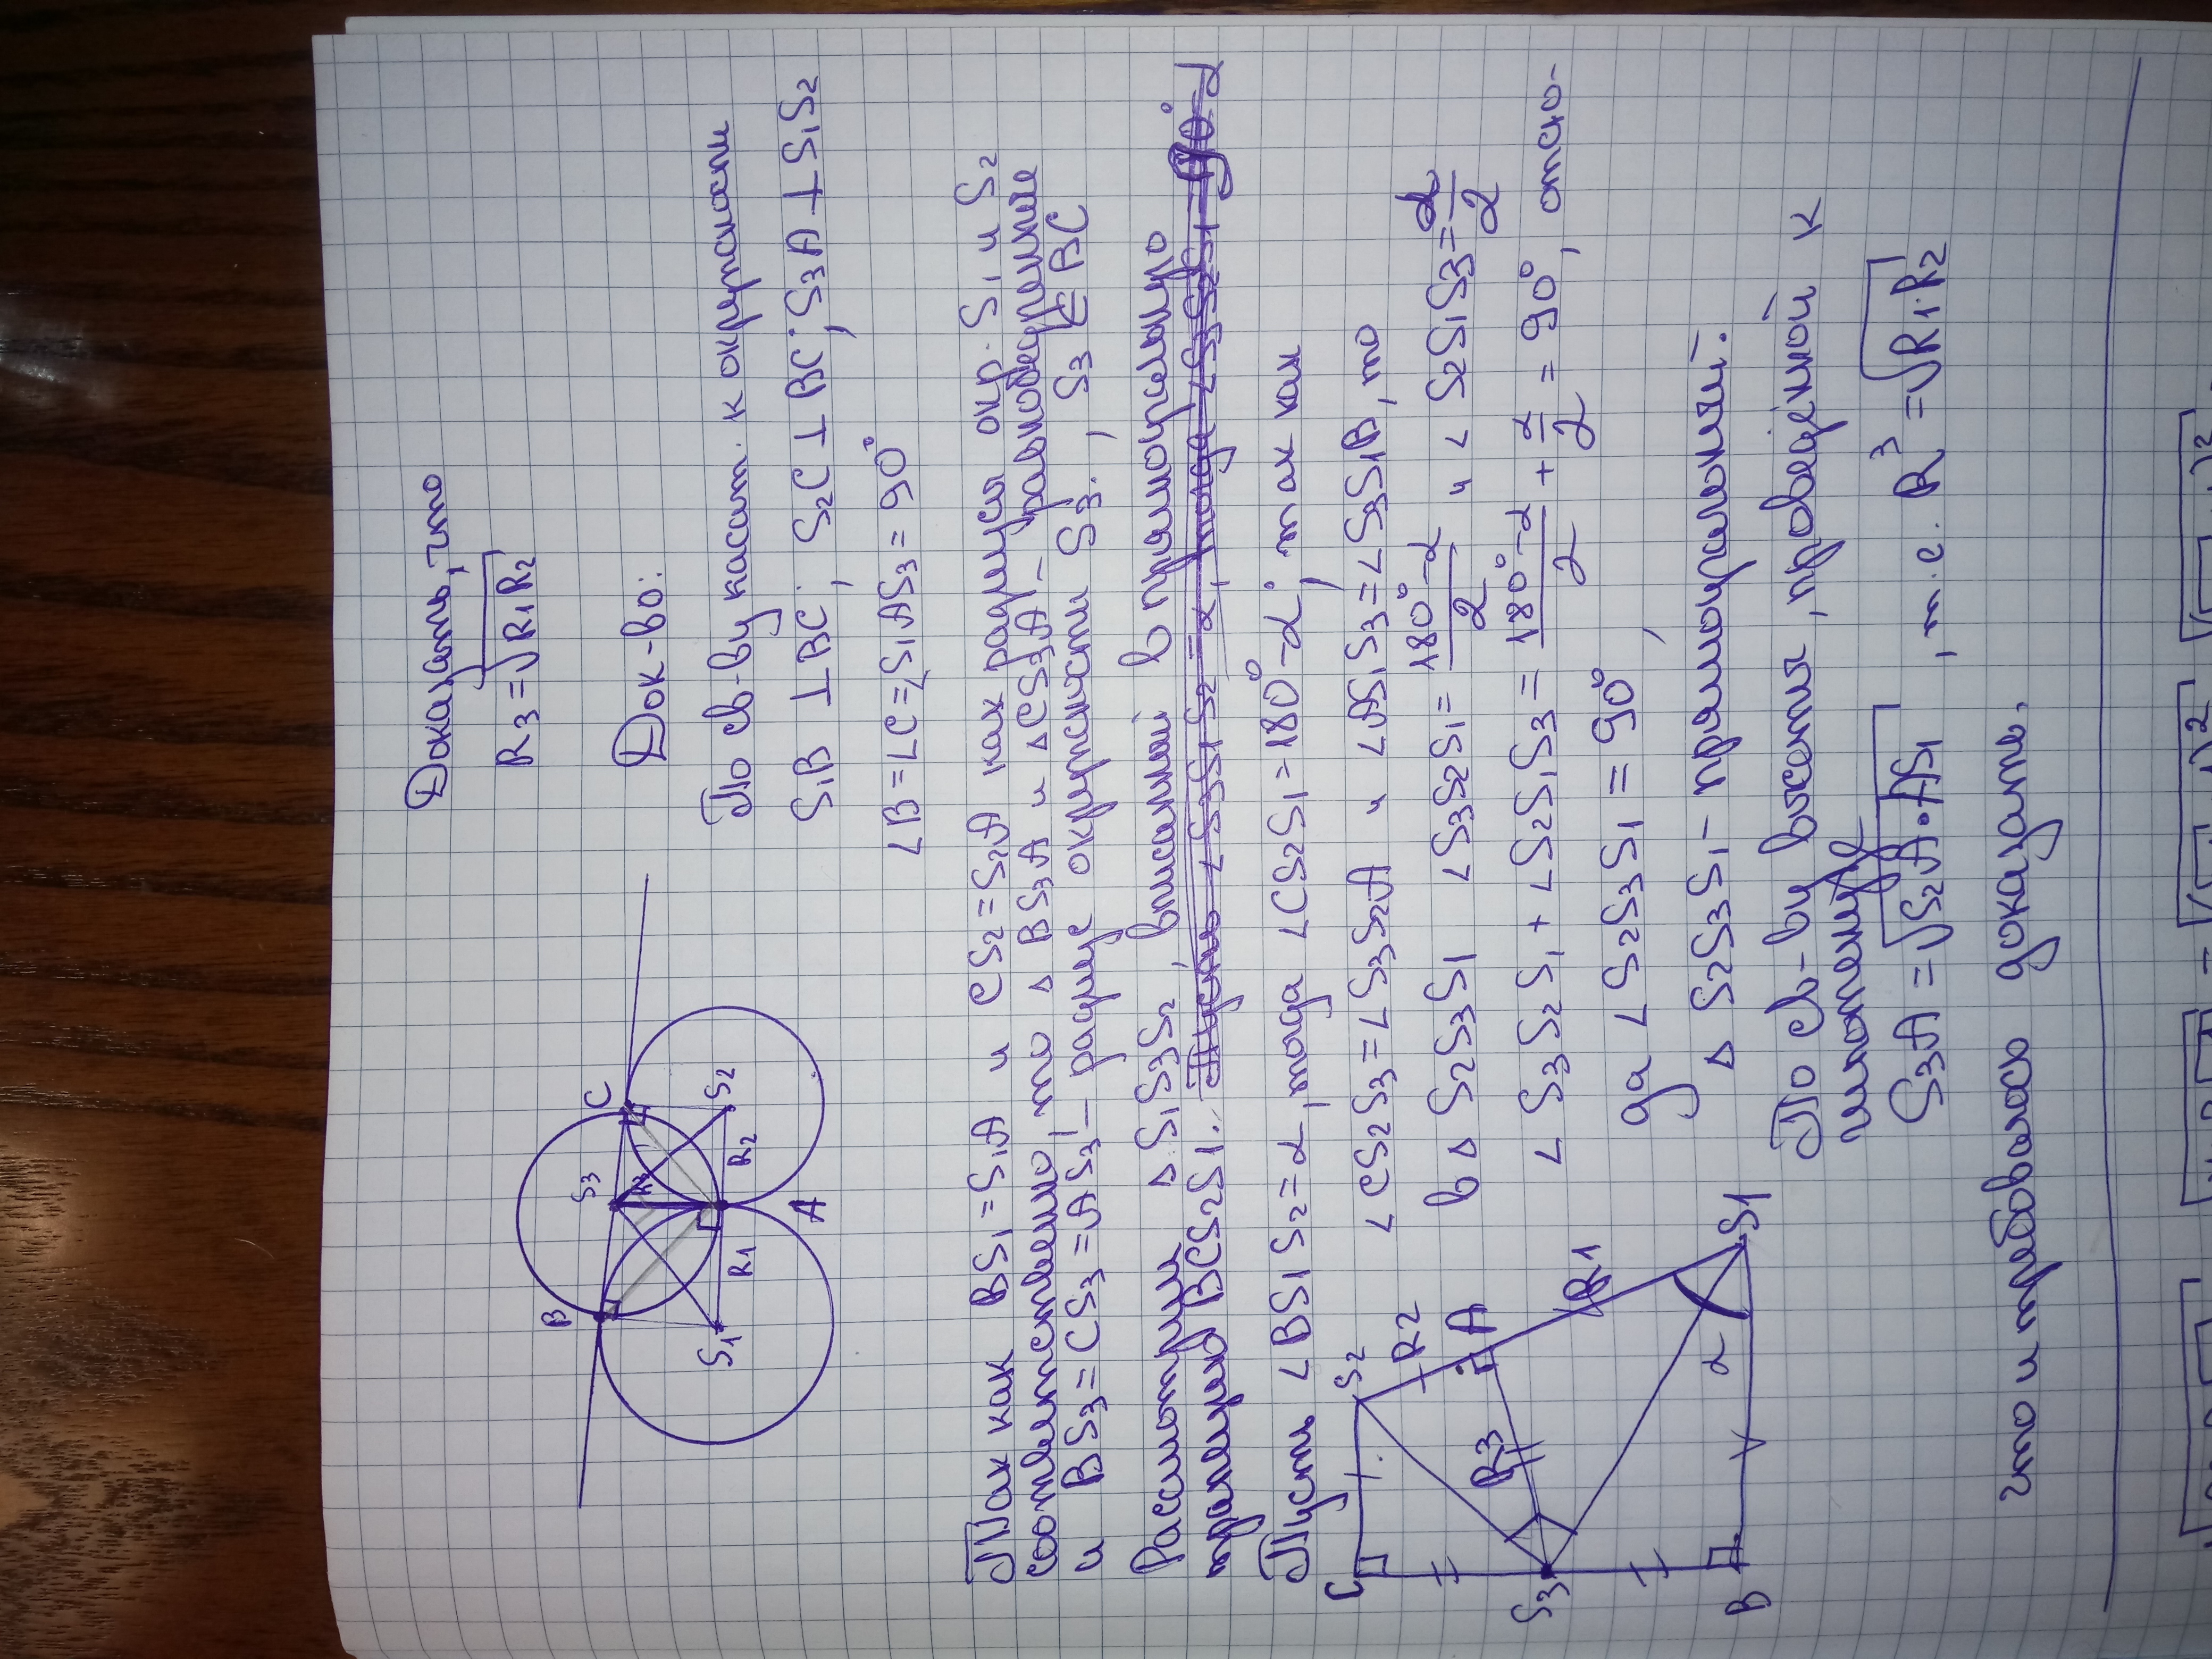 Доказать, что
R3 = √R1R2
Док-во:
По св-ву касат. к окружности
S1B ⊥ BC; S2C ⊥ BC; S3A ⊥ S1S2
∠B = ∠C = ∠S1AS3 = 90°
B
S3
C
S1
R1
R2
S2
A
Так как BS1 = S1A и CS2 = S2A как радиусы окр. S1 и S2
соответственно, то △ BS3A и △CS3A - равнобедренные
и BS3 = CS3 = AS3 - радиус окружности S3., S3 ∈ BC
Рассмотрим △ S1S3S2, вписанный в прямоугольную
трапецию BCS2S1. Пусть ∠S3S1S2 = α, тогда ∠S3S2S1 = 90° - α
Пусть ∠BS1S2 = α, тогда ∠CS2S1 = 180° - α; так как
∠CS2S3 = ∠S3S2A и ∠AS1S3 = ∠S3S1B, то
в △ S2S3S1 ∠S3S2S1 = (180° - α)/2 и ∠S2S1S3 = α/2
∠S3S2S1 + ∠S2S1S3 = (180° - α)/2 + α/2 = 90°, отсю-
да ∠S2S3S1 = 90°,
△ S2S3S1 - прямоугольный.
По св-ву высоты, проведённой к
гипотенузе
S3A = √S2A · AS1, т.е. R3 = √R1·R2
что и требовалось доказать.
C
S2
R2
A
R3
R1
S3
B
α
S1